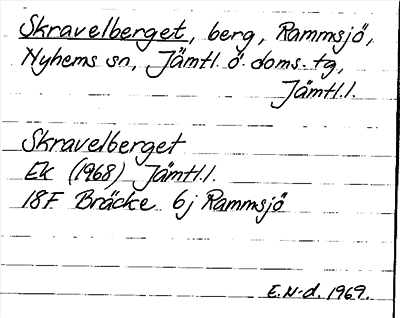 Skravelberget, berg, Rammsjö,
Nyhems sn, Jämtl. ö. doms. tg,
Jämtl.l.
Skravelberget
Ek (1968) Jämtl.l.
18F Bräcke 6j Rammsjö
E.N-d. 1969.